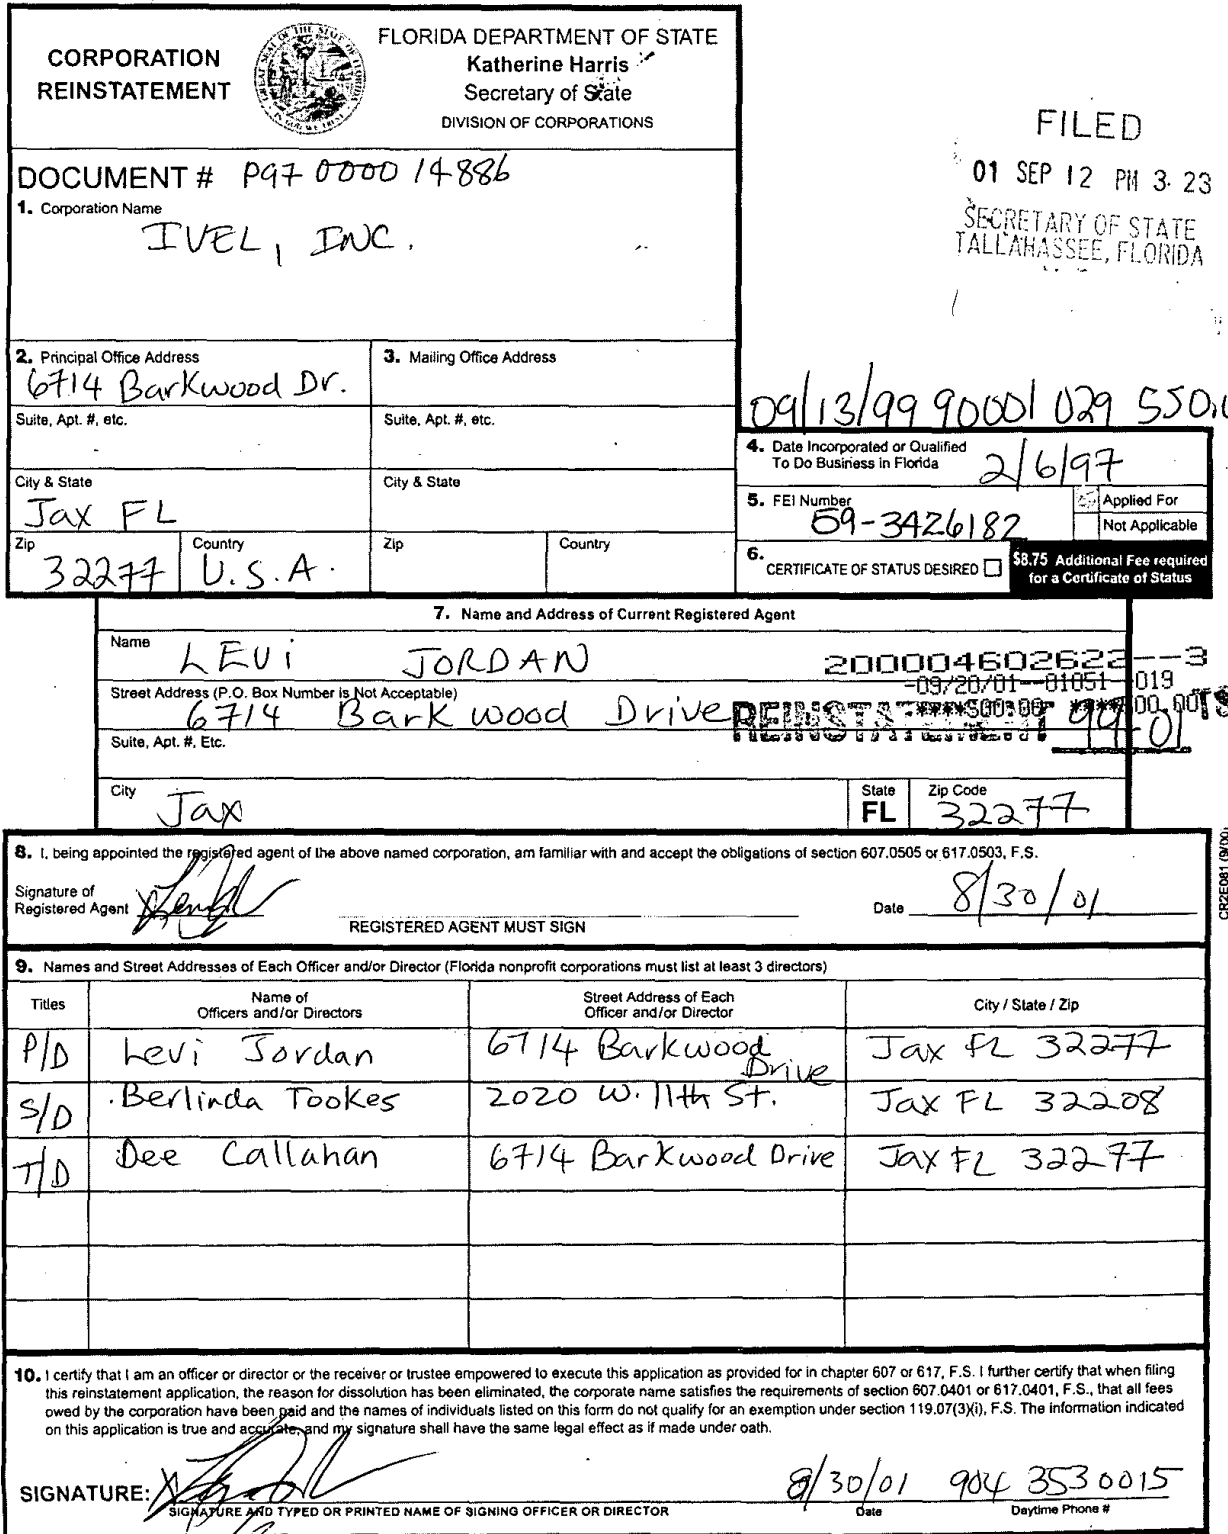 CORPORATION
REINSTATEMENT
FLORIDA DEPARTMENT OF STATE
Katherine Harris
Secretary of State
DIVISION OF CORPORATIONS
FILED
01 SEP 12 PM 3 23
SECRETARY OF STATE
TALLAHASSEE, FLORIDA
DOCUMENT # P97 0000 14886
1. Corporation Name
IVEL, INC.
2. Principal Office Address
6714 Barkwood Dr.
3. Mailing Office Address
Suite, Apt. #, etc.
Suite, Apt. #, etc.
09/13/99 90001 029 550.
4. Date Incorporated or Qualified
To Do Business in Florida
2/6/97
City & State
Jax FL
City & State
5. FEI Number
59-3426182
Applied For
Not Applicable
Zip
32277
Country
U.S.A.
Zip
Country
6. CERTIFICATE OF STATUS DESIRED
$8.75 Additional Fee required
for a Certificate of Status
7. Name and Address of Current Registered Agent
Name
LEVi JORDAN
200004602622--3
-09/20/01--01051--019
Street Address (P.O. Box Number is Not Acceptable)
6714 Barkwood Drive
REINSTATEMENT 99-01
Suite, Apt. #, Etc.
City
Jax
State
FL
Zip Code
32277
8. I, being appointed the registered agent of the above named corporation, am familiar with and accept the obligations of section 607.0505 or 617.0503, F.S.
Signature of
Registered Agent
REGISTERED AGENT MUST SIGN
Date 8/30/01
CR2E081 (9/00)
9. Names and Street Addresses of Each Officer and/or Director (Florida nonprofit corporations must list at least 3 directors)
Titles
Name of
Officers and/or Directors
Street Address of Each
Officer and/or Director
City / State / Zip
P/D Levi Jordan 6714 Barkwood Drive Jax FL 32277
S/D Berlinda Tookes 2020 W. 11th St. Jax FL 32208
T/D Dee Callahan 6714 Barkwood Drive Jax FL 32277
10. I certify that I am an officer or director or the receiver or trustee empowered to execute this application as provided for in chapter 607 or 617, F.S. I further certify that when filing
this reinstatement application, the reason for dissolution has been eliminated, the corporate name satisfies the requirements of section 607.0401 or 617.0401, F.S., that all fees
owed by the corporation have been paid and the names of individuals listed on this form do not qualify for an exemption under section 119.07(3)(i), F.S. The information indicated
on this application is true and accurate, and my signature shall have the same legal effect as if made under oath.
SIGNATURE:
8/30/01 904 3530015
SIGNATURE AND TYPED OR PRINTED NAME OF SIGNING OFFICER OR DIRECTOR
Date
Daytime Phone #